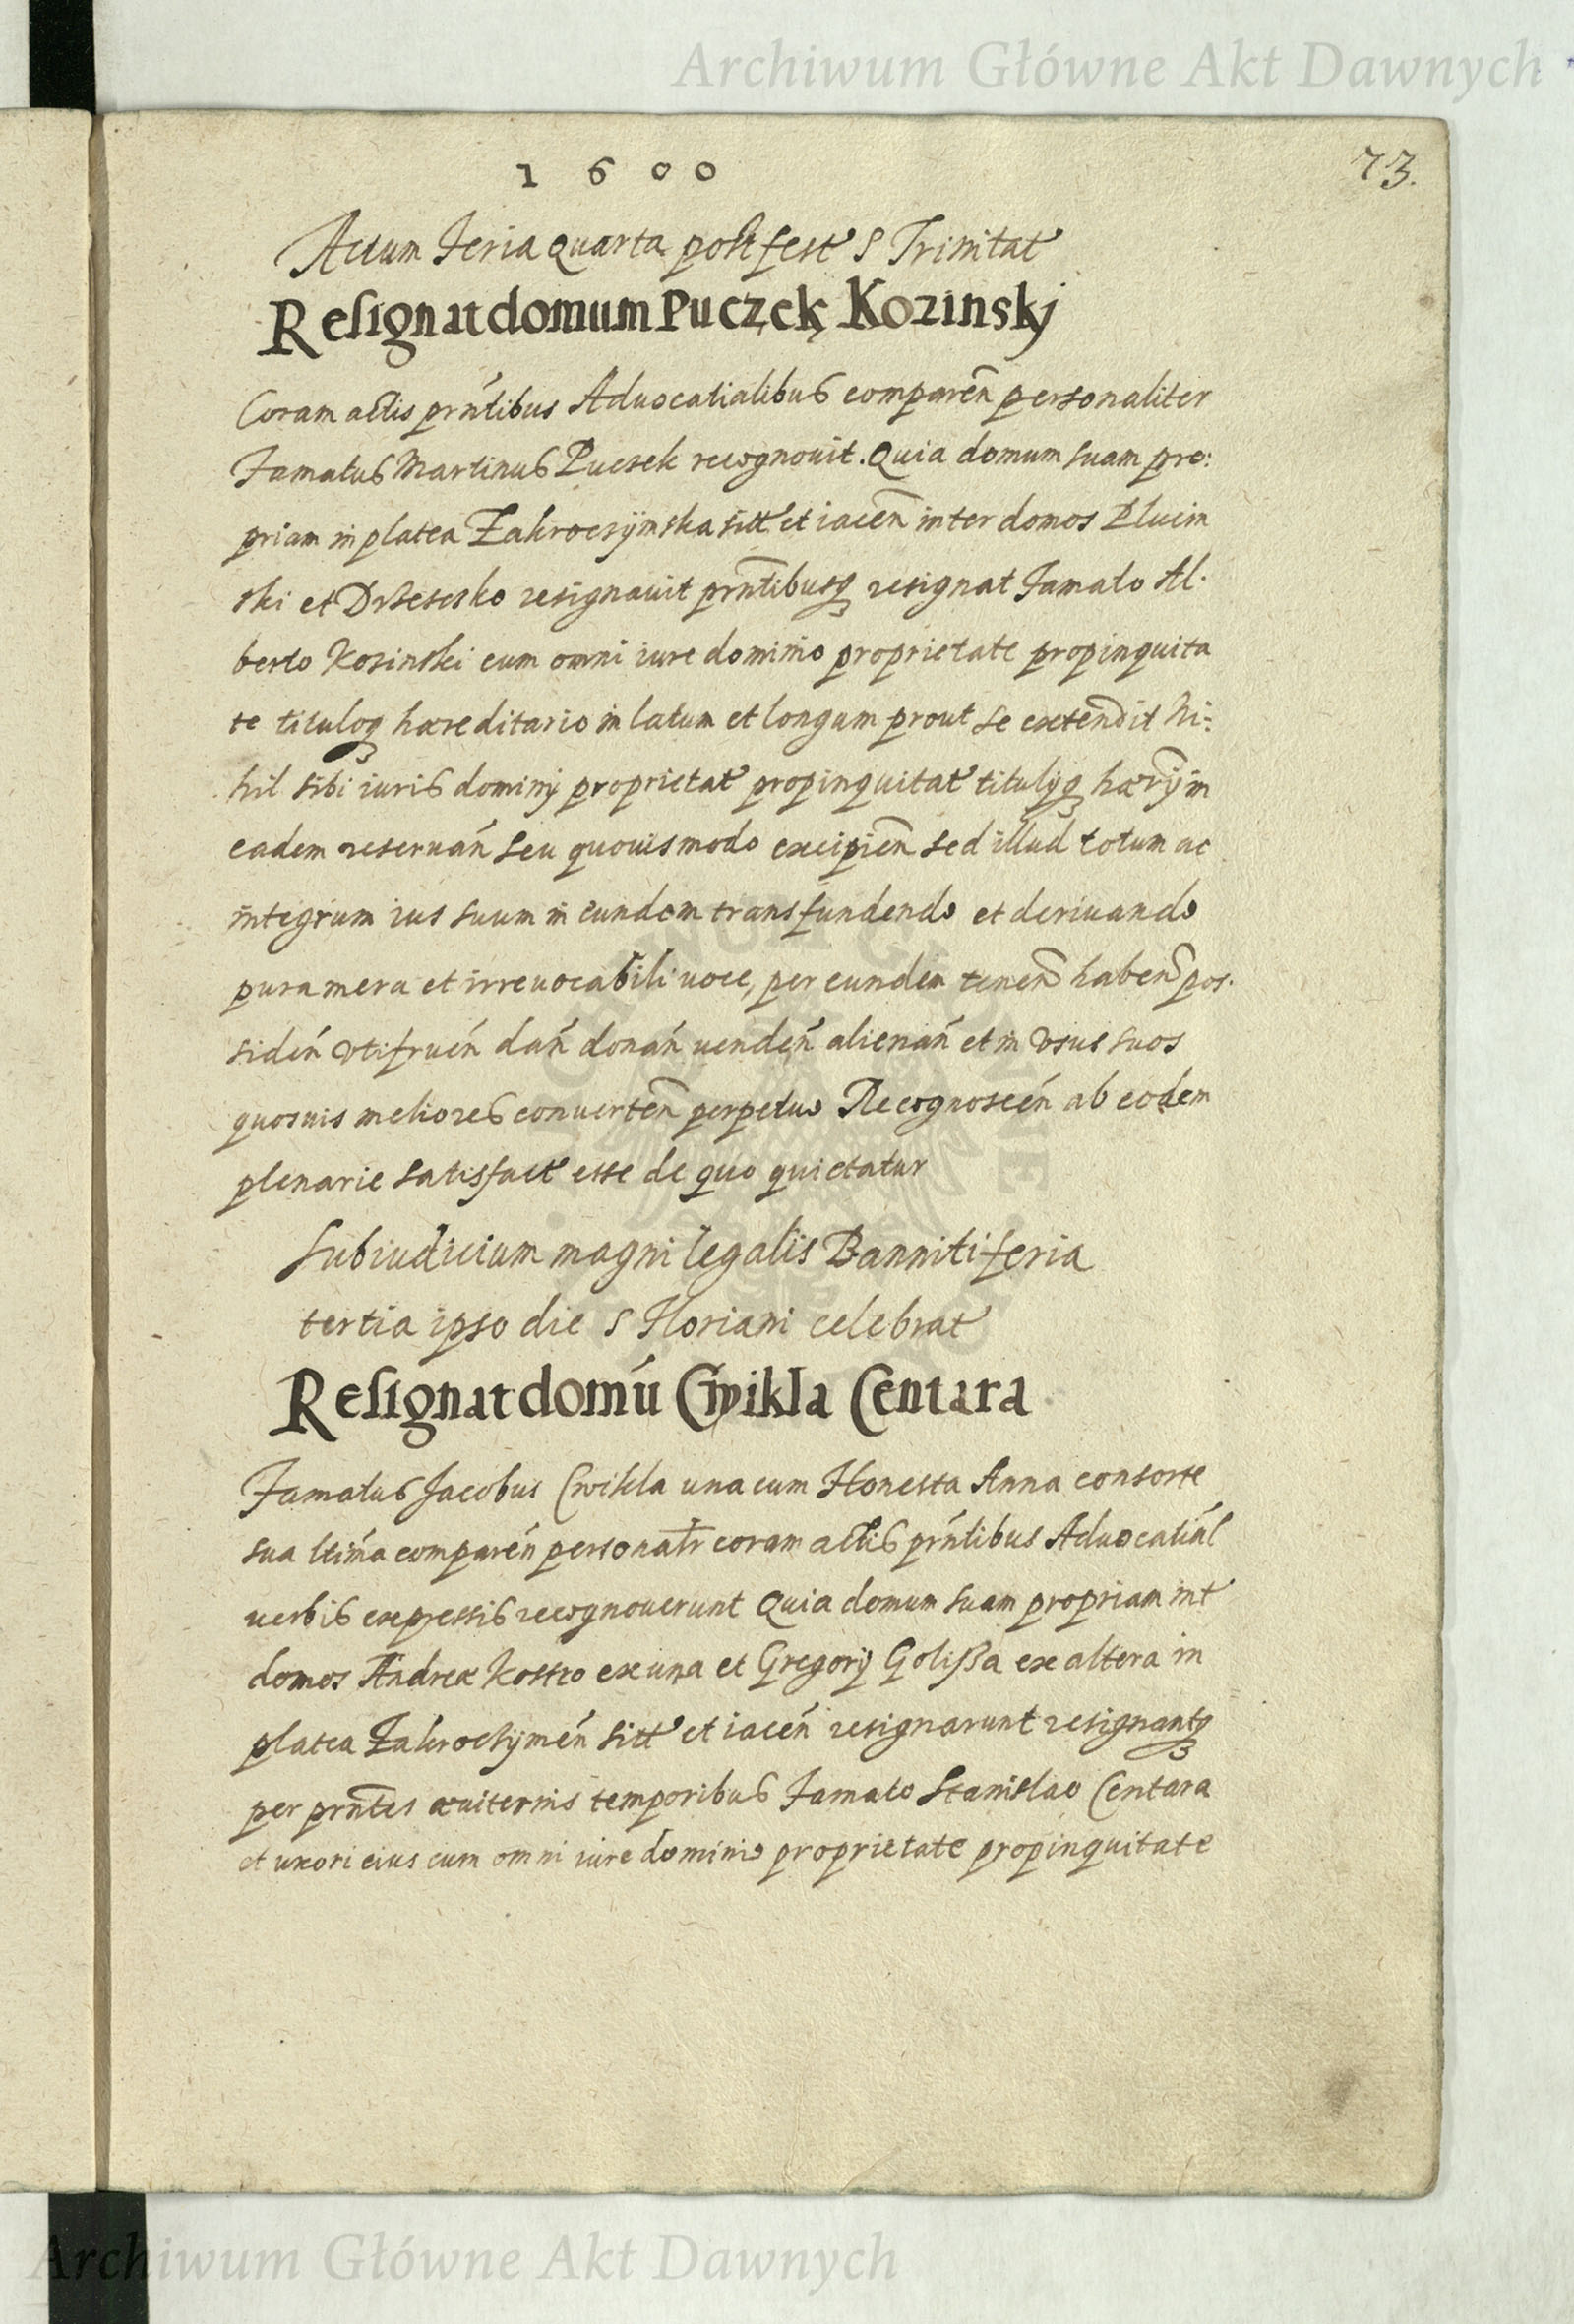 Archiwum Główne Akt Dawnych
1600
73.
Actum Feria Quarta post fest S Trinitat
Resignat domum Puczek Kozinskj
Coram actis prńtibus Aduocatialibus comparen̄ personaliter
Famatus Martinus Puczek recognouit. Quia domum suam pro:
priam in platea Zakroczÿmska sitt et iacen̄ inter domos Plucin
ski et Drzeszko resignauit prn̄tibusq resignat Famato Al.
berto Kozinski cum omni iure dominio proprietate propinquita
te tituloq hæreditario in latum et longum prout se extendit Ni:
hil sibi iuris dominij proprietat propinquitat titulijq hærij in
eadem reseruań seu quouismodo excipien̄ sed illud totum ac
integrum ius suum in eundem transfundendo et deriuando
pura mera et irreuocabili uoce, per eundem tenen̄ haben̄ pos.
sideń vtifrueń dań donań uendeń alienań et in vsus suos
quosuis meliores conuerten̄ perpetuo Recognosceń ab eodem
plenarie satisfact esse de quo quietatur
Sub iudicium magni legalis Banniti feria
tertia ipso die S Floriani celebrat
Resignat domú Cwikla Centara
Famatus Jacobus Cwikla una cum Honesta Anna consorte
sua ltima compareń personalr coram actis prńtibus Aduocatial
uerbis expressis recognouerunt Quia domum suam propriam int
domos Andreæ Kostro ex una et Gregorij Golißa ex altera in
platea Zakroczÿmeń sitt et iaceń resignarunt resignantq
per prn̄tes æuiternis temporibus Famato Stanislao Centara
et uxori eius cum omni iure dominio proprietate propinquitate
Archiwum Główne Akt Dawnych